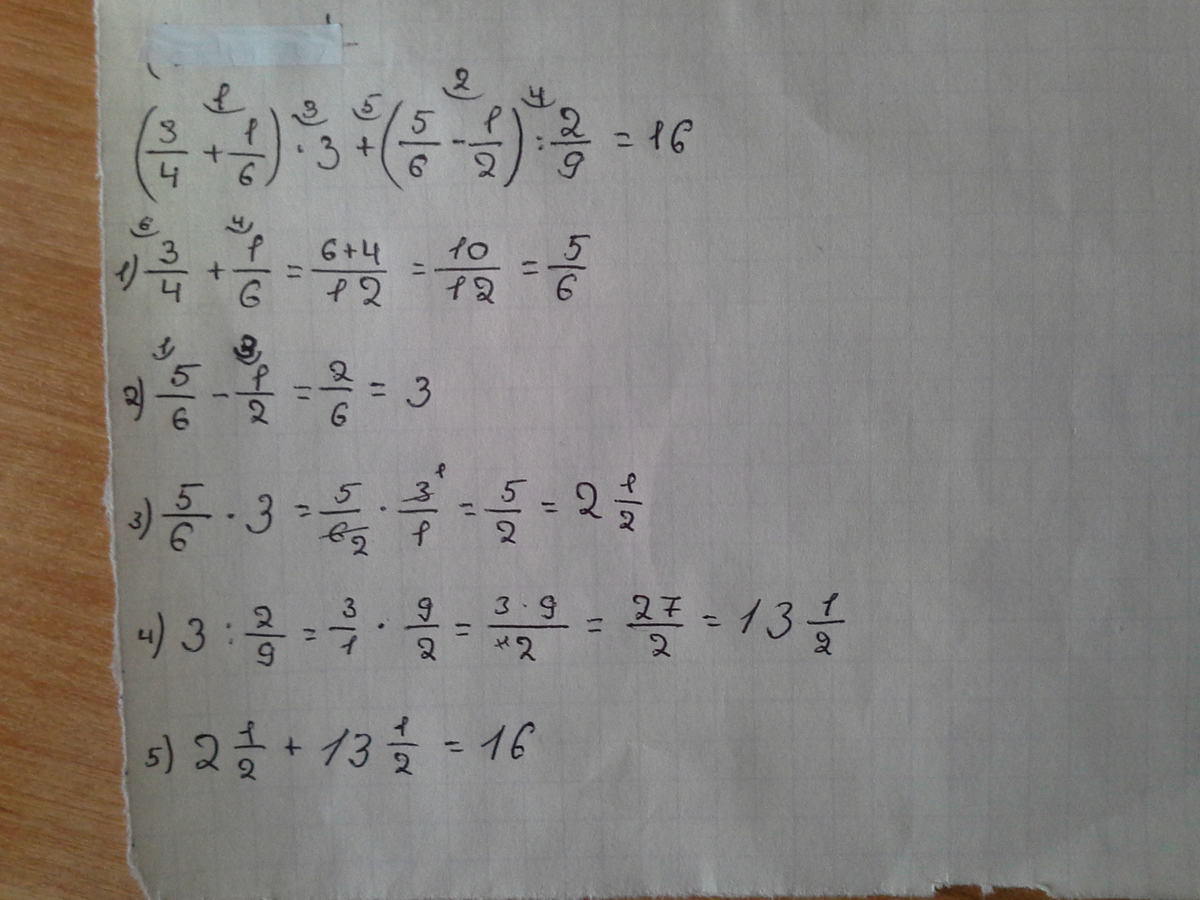 (3/4 + 1/6) · 3 + (5/6 - 1/2) : 2/9 = 16
1) 3/4 + 1/6 = 6+4/12 = 10/12 = 5/6
2) 5/6 - 1/2 = 2/6 = 3
3) 5/6 · 3 = 5/6 2 · 3 1/1 = 5/2 = 2 1/2
4) 3 : 2/9 = 3/1 · 9/2 = 3 · 9/*2 = 27/2 = 13 1/2
5) 2 1/2 + 13 1/2 = 16